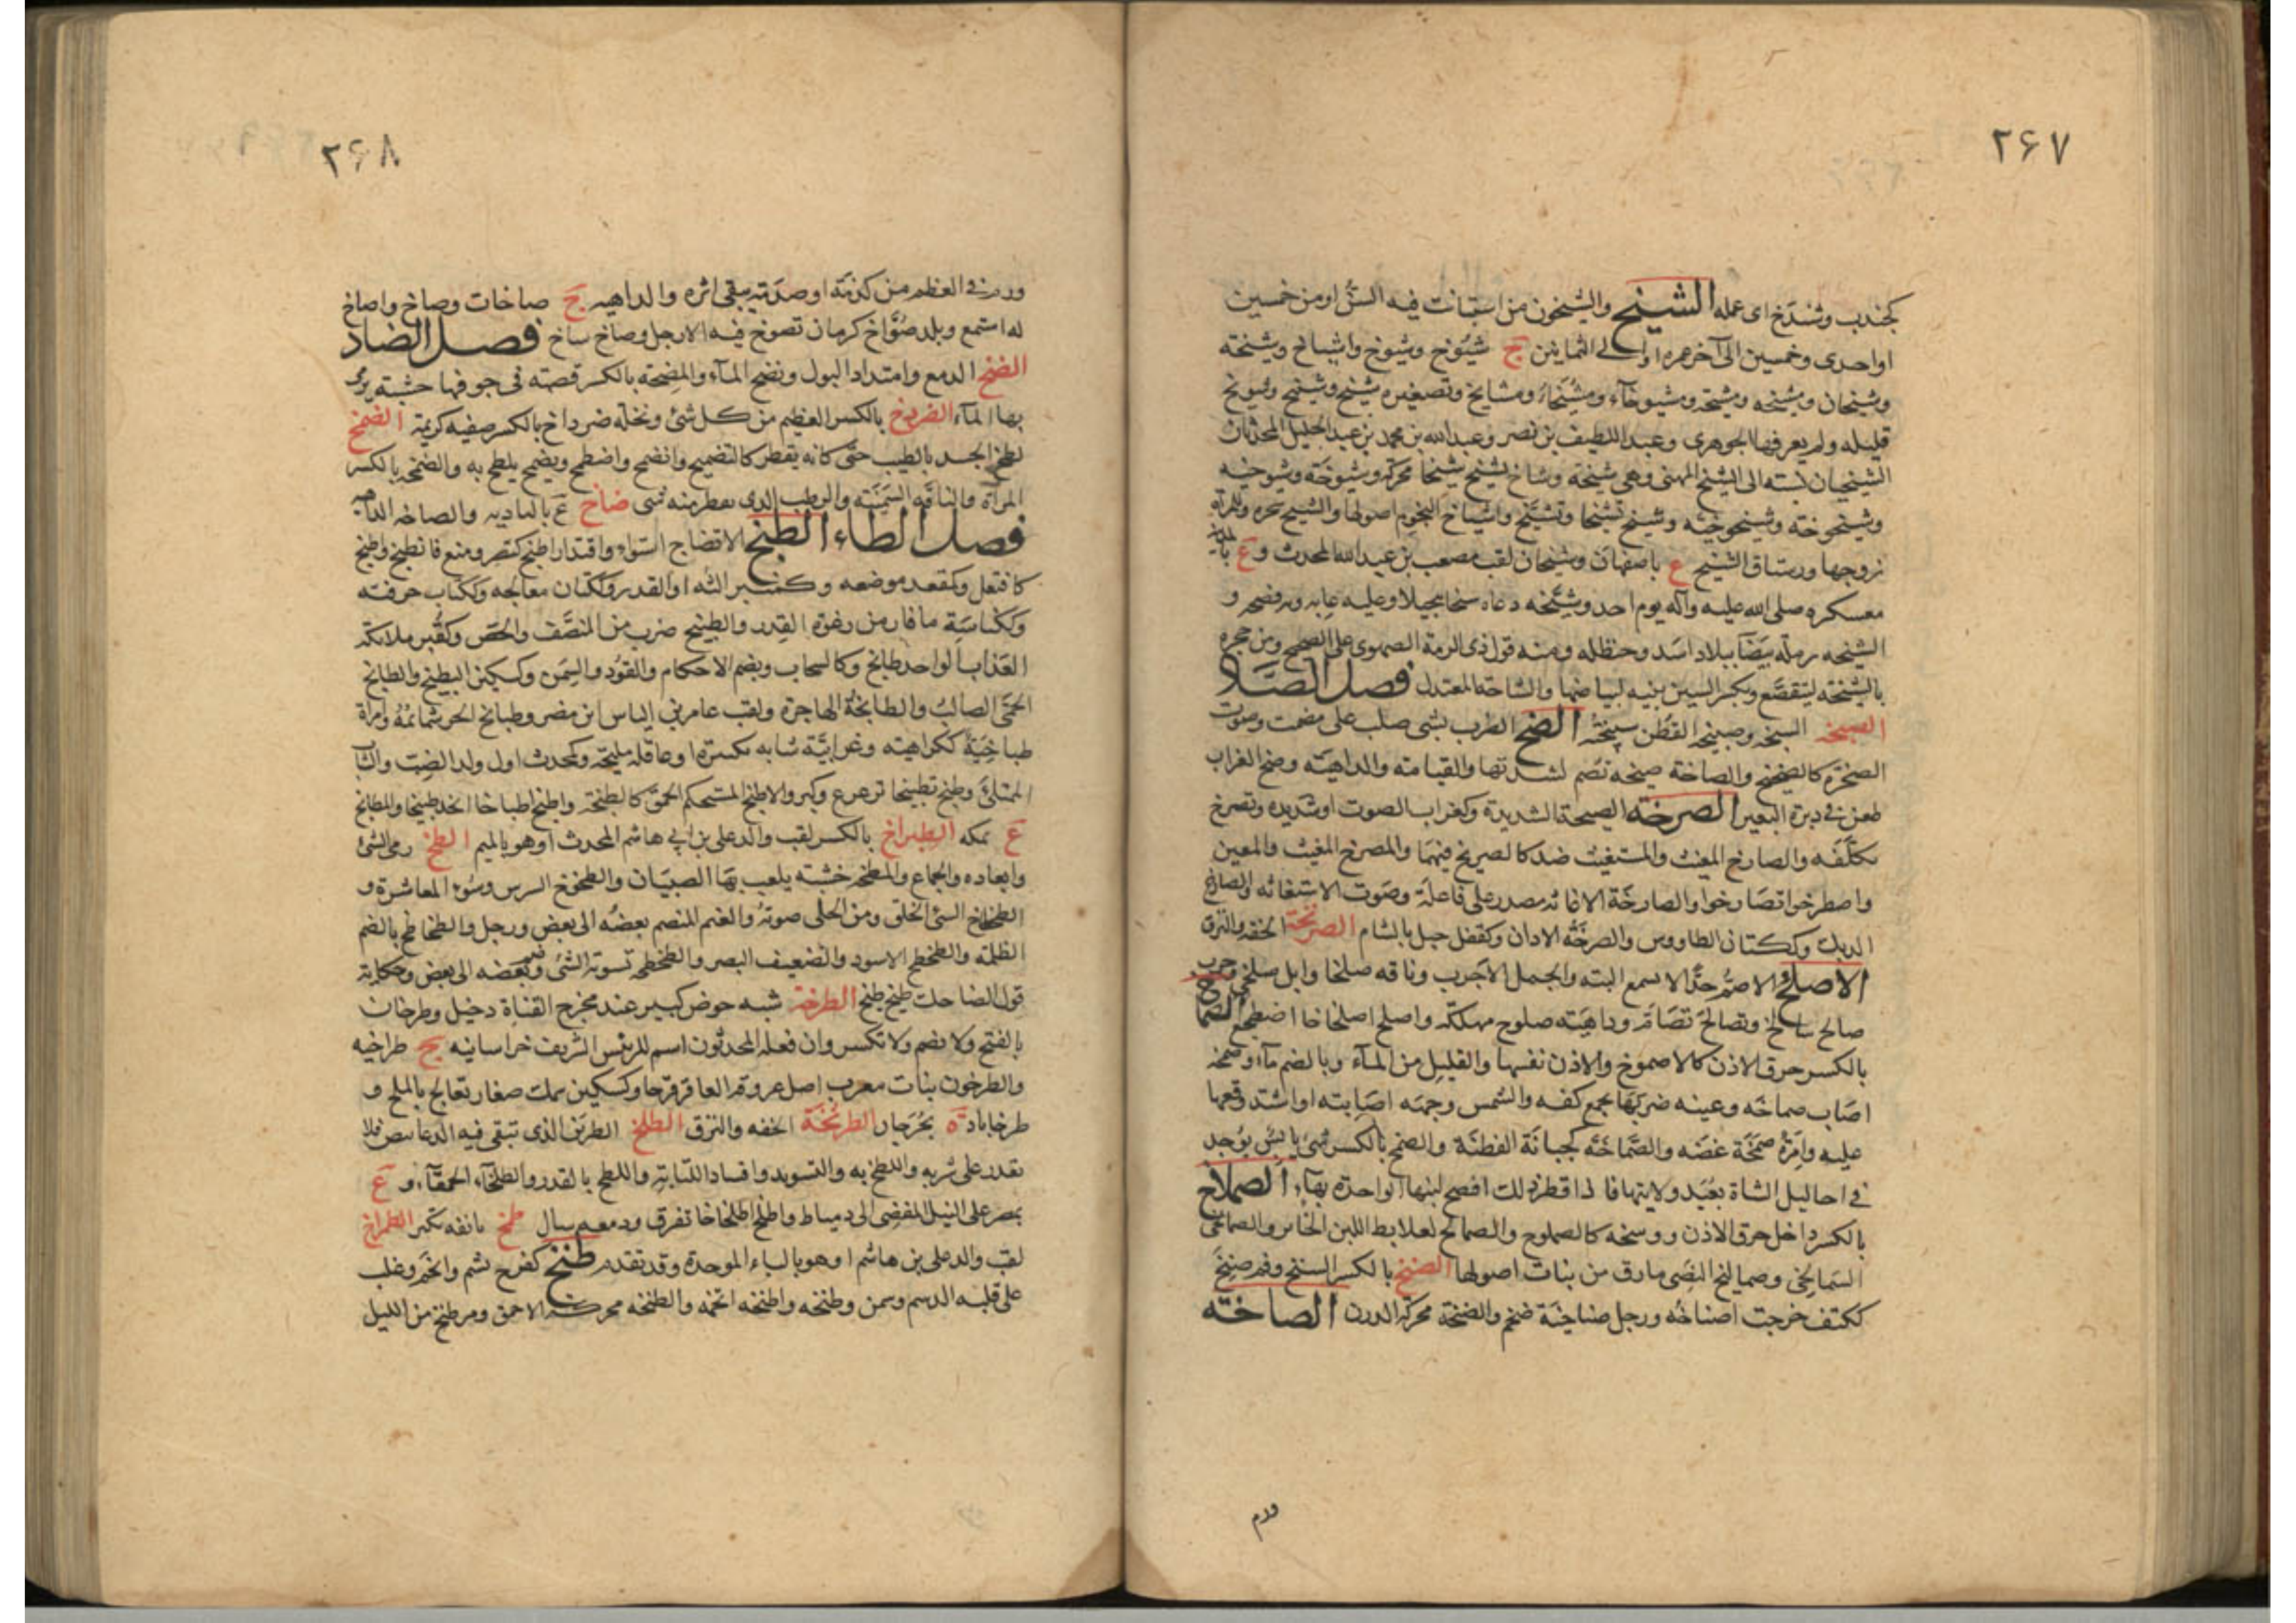 ٢۶٧
كجندب وشندخ اى عمله الشيخ والشيخون من استبانت فيه السن او من خمسين
او احدى وخمسين الى آخر عمره او الى الثمانين ج شيوخ وشيوخ واشياخ وشيخة
وشيخان ومشيخه ومشيخة ومشيوخاء ومشيخاء ومشايخ وتصغيره شييخ وشييخ وشويخ
قليله ولم يعرفها الجوهرى وعبد اللطيف بن نصر وعبد الله بن محمد بن عبد الجليل المحدثان
الشيخيان نسبته الى الشيخ المهنى وهى شيخة وشاخ يشيخ شيخا محركة وشيوخة وشيوخيه
وشيخوخة وشيخوخيه وشيخ تشيخا وتشيخ واشياخ النجوم اصولها والشيخ شجره وللمرأة
زوجها ورستاق الشيخ ع باصفهان وشيخان لقب مصعب بن عبد الله المحدث و ع بالمدينة
معسكره صلى الله عليه وآله يوم احد وشيخه دعاه شيخا تبجيلا وعليه عابه وبه فضحه و
الشيخه رملة بيضا ببلاد اسد وحنظله ومنه قول ذى الرمة الصموى على الصحيح ومن حجره
بالشيخه ليتقصع وبكسر السين بنيه لبياضها والشاخة المعتدل فصل الصاد
الصبخه السبخه وصبيخة القطن سبيخته الصخ الضرب بشى صلب على مصمت وصوت
الصخرة كالصخيخ والصاخة صيحه تصم لشدتها والقيامة والداهية وصخ الغراب
طعن فى دبرة البعير الصرخة الصيحة الشديدة وكغراب الصوت او شديده وتصرخ
تكلفه والصارخ المغيث والمستغيث ضد كالصريخ فيهما والمصرخ المغيث والمعين
واصطرخوا تصارخوا والصارخة الاغاثه مصدر على فاعلة وصوت الاستغاثه والصارخ
الديك وككتان الطاووس والصرخة الاذان وكقفل جبل بالشام الصرنخة الخفه والنزق
الاصلخ الاصم جدا لا يسمع البته والجمل الاجرب وناقه صلخا وابل صلخى وجرب
صالخ سالخ وتصالخ تصام وداهية صلوخ مهلكة واصلخ اصلخاخا اضطجع الصماخ
بالكسر خرق الاذن كالاصموخ والاذن نفسها والقليل من الماء وبالضم ماء وصمخه
اصاب صماخه وعينه ضربها بجمع كفه والشمس وجهه اصابته او اشتد وقعها
عليه وامرأة صمخة غضه والصماخة كجبانة القطنة والصمخ بالكسر شى يابس يوجد
فى احاليل الشاة بعيد ولادتها فاذا قطر ذلك افصح لبنها الواحدة بهاء الصملاخ
بالكسر داخل خرق الاذن ووسخه كالصملوخ والصمالخ كعلابط اللبن الخاثر والصمالخى
السمالخى وصماليخ النصى مارق من نبات اصولها الصنخ بالكسر السنخ وفم صنخ
ككتف خرجت اصناخه ورجل صناخية ضخم والصنخة محركة الدرن الصاخه
ورم
٢۶٨
ورم فى العظم من كدمة او صدمة يبقى اثره والداهيه ج صاخات وصاخ واصاخ
له استمع وبلد صواخ كرمان تصوخ فيه الارجل وصاخ ساخ فصل الضاد
الضخ الدمع وامتداد البول ونضح الماء والمضخة بالكسر قصبة فى جوفها خشبة يرمى
بها الماء الضردخ بالكسر العظيم من كل شئ ونخلة ضرداخ بالكسر صفيه كريمة الضمخ
لطخ الجسد بالطيب حتى كانه يقطر كالتضميخ وانضمخ واضطمخ وتضمخ تلطخ به والضمخه بالكسر
المرأة والناقه السمينه والرطب الذى يقطر منه شى ضاخ ع بالباديه والضاخه الداهيه
فصل الطاء الطبخ الانضاج استواء واقتدارا طبخ كنصر ومنع فانطبخ واطبخ
كافتعل وكمقعد موضعه وكمنبر آلته او القدر وكتان معالجه وككتاب حرفته
وككناسة ما فار من رغوة القدر والطبيخ ضرب من المنصف والجص وكقبر ملائكة
العذاب الواحد طابخ وكالسحاب وبضم الاحكام والقوة والسمن وكسكين البطيخ والطابخ
الحمى الصالب والطابخة الهاجرة ولقب عامر بن الياس ابن مضر وطبائخ الحر سمائمه وامرأة
طباخية ككراهية وغرابية شابه مكتنزة او عاقله مليحة وكمحدث اول ولد الضب والشاب
الممتلئ وطبخ تطبيخا ترعرع وكبر والاطبخ المستحكم الحمق كالطبخة واطبخ اطباخا اتخذ طبيخا والمطابخ
ع بمكه الطبراخ بالكسر لقب والد على بن ابى هاشم المحدث او هو بالميم الطخ رمى الشئ
وابعاده والجماع والمطخة خشبه يلعب بها الصبيان والطخوخ الشرس وسوء المعاشرة و
الطخطاخ السئ الخلق ومن الحلى صوته والغيم المنضم بعضه الى بعض ورجل والطخاطخ بالضم
الظلمه والطخطخ الاسود والضعيف البصر والطخطخه تسوية الشى وضم بعضه الى بعض وحكاية
قول الضاحك طيخ طيخ الطرخة شبه حوض كبير عند مخرج القناة دخيل وطرخان
بالفتح ولا يضم ولا تكسر وان فعله المحدثون اسم للرئيس الشريف خراسانيه ج طراخنه
والطرخون نبات معرب اصل عروقه العاقر قرحا وكسكين سمك صغار تعالج بالملح و
طرخاباد ة بجرجان الطرنخة الخفه والنزق الطلخ الطين الذى تبقى فيه الدعاميص فلا
يقدر على شربه واللطخ به والتسويد وافساد الكتابة واللطخ بالقذر والطلخاء الحمقاء و ع
بمصر على النيل المفضى الى دمياط واطلخ اطلخاخا تفرق ودمعه سال طمخ بانفه تكبر الطمراخ
لقب والد على بن هاشم او هو بالباء الموحدة وقد تقدم طنخ كفرح بشم واتخم وغلب
على قلبه الدسم وسمن وطنخه واطنخه اتخمه والطنخه محركة الاحمق ومر طنخ من الليل